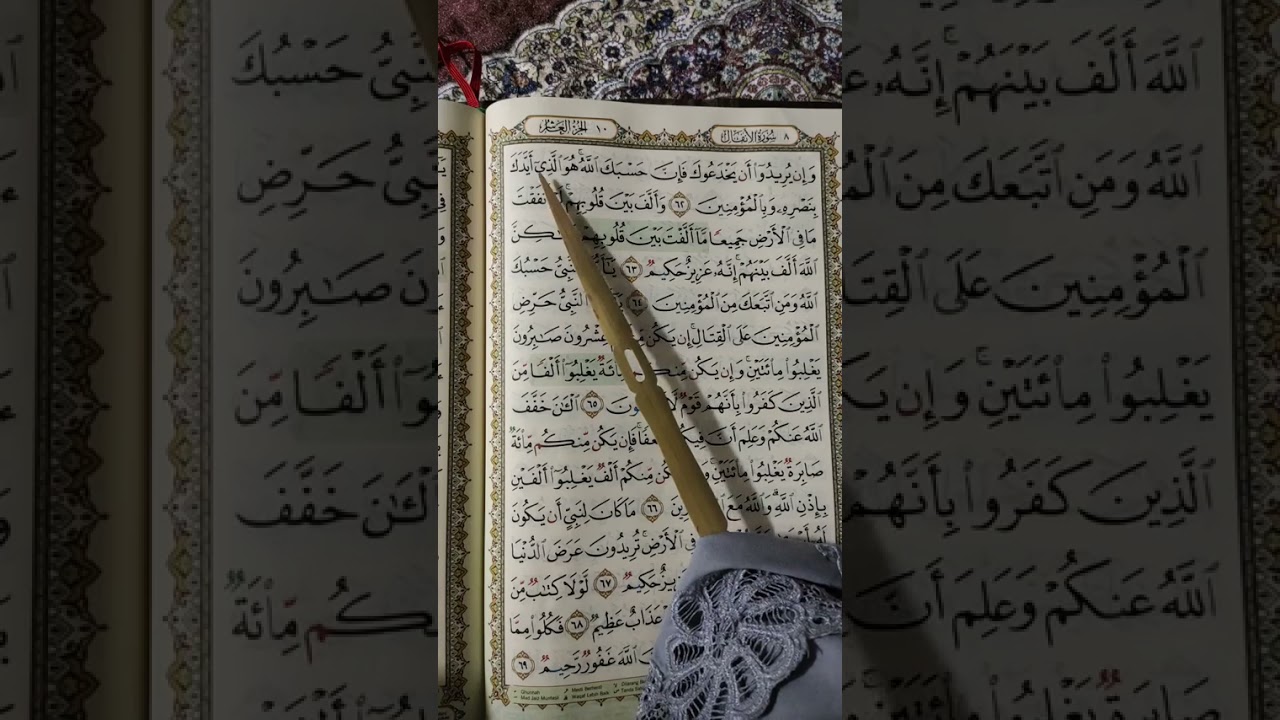 الجزء العاشر ١٠
سورة الأنفال ٨
وَإِن يُرِيدُوٓا۟ أَن يَخْدَعُوكَ فَإِنَّ حَسْبَكَ ٱللَّهُ ۚ هُوَ ٱلَّذِىٓ أَيَّدَكَ
بِنَصْرِهِۦ وَبِٱلْمُؤْمِنِينَ ٦٢ وَأَلَّفَ بَيْنَ قُلُوبِهِمْ ۚ أَنفَقْتَ
مَا فِى ٱلْأَرْضِ جَمِيعًا مَّآ أَلَّفْتَ بَيْنَ قُلُوبِهِمْ
ٱللَّهَ أَلَّفَ بَيْنَهُمْ ۚ إِنَّهُۥ عَزِيزٌ حَكِيمٌ ٦٣ ٱلنَّبِىُّ حَسْبُكَ
ٱللَّهُ وَمَنِ ٱتَّبَعَكَ مِنَ ٱلْمُؤْمِنِينَ ٦٤ ٱلنَّبِىُّ حَرِّضِ
ٱلْمُؤْمِنِينَ عَلَى ٱلْقِتَالِ ۚ إِن يَكُن عِشْرُونَ صَـٰبِرُونَ
يَغْلِبُوا۟ مِا۟ئَتَيْنِ ۚ وَإِن يَكُن مِّنكُم مِّا۟ئَةٌ يَغْلِبُوٓا۟ أَلْفًا مِّنَ
ٱلَّذِينَ كَفَرُوا۟ بِأَنَّهُمْ قَوْمٌ لَّا ٦٥ ٱلْـَٔـٰنَ خَفَّفَ
ٱللَّهُ عَنكُمْ وَعَلِمَ أَنَّ فَإِن يَكُن مِّنكُم مِّا۟ئَةٌ
صَابِرَةٌ يَغْلِبُوا۟ مِا۟ئَتَيْنِ ۚ مِّنكُمْ أَلْفٌ يَغْلِبُوٓا۟ أَلْفَيْنِ
بِإِذْنِ ٱللَّهِ ۗ وَٱللَّهُ مَعَ ٦٦ مَا كَانَ لِنَبِىٍّ أَن يَكُونَ
لَهُۥٓ فِى ٱلْأَرْضِ ۚ تُرِيدُونَ عَرَضَ ٱلدُّنْيَا
حَكِيمٌ ٦٧ لَّوْلَا كِتَـٰبٌ مِّنَ
عَذَابٌ عَظِيمٌ ٦٨ فَكُلُوا۟ مِمَّا
ٱللَّهَ غَفُورٌ رَّحِيمٌ ٦٩